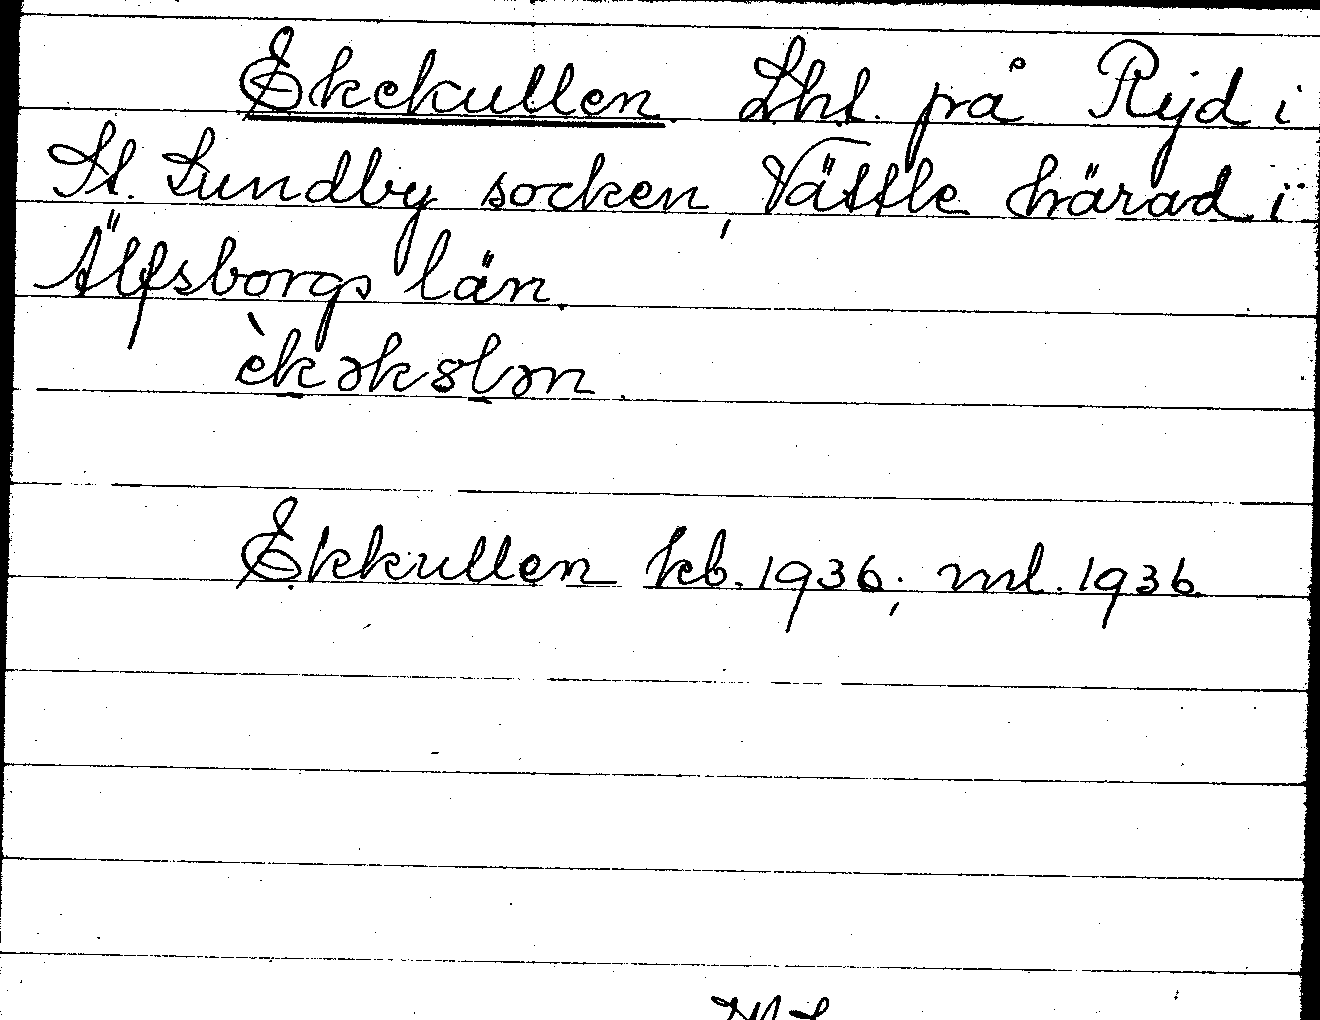 Ekekullen Lht. på Ryd i
St. Lundby socken, Vättle härad i
Älfsborgs län.
èkəkslən.
Ekkullen kb. 1936; ml. 1936.